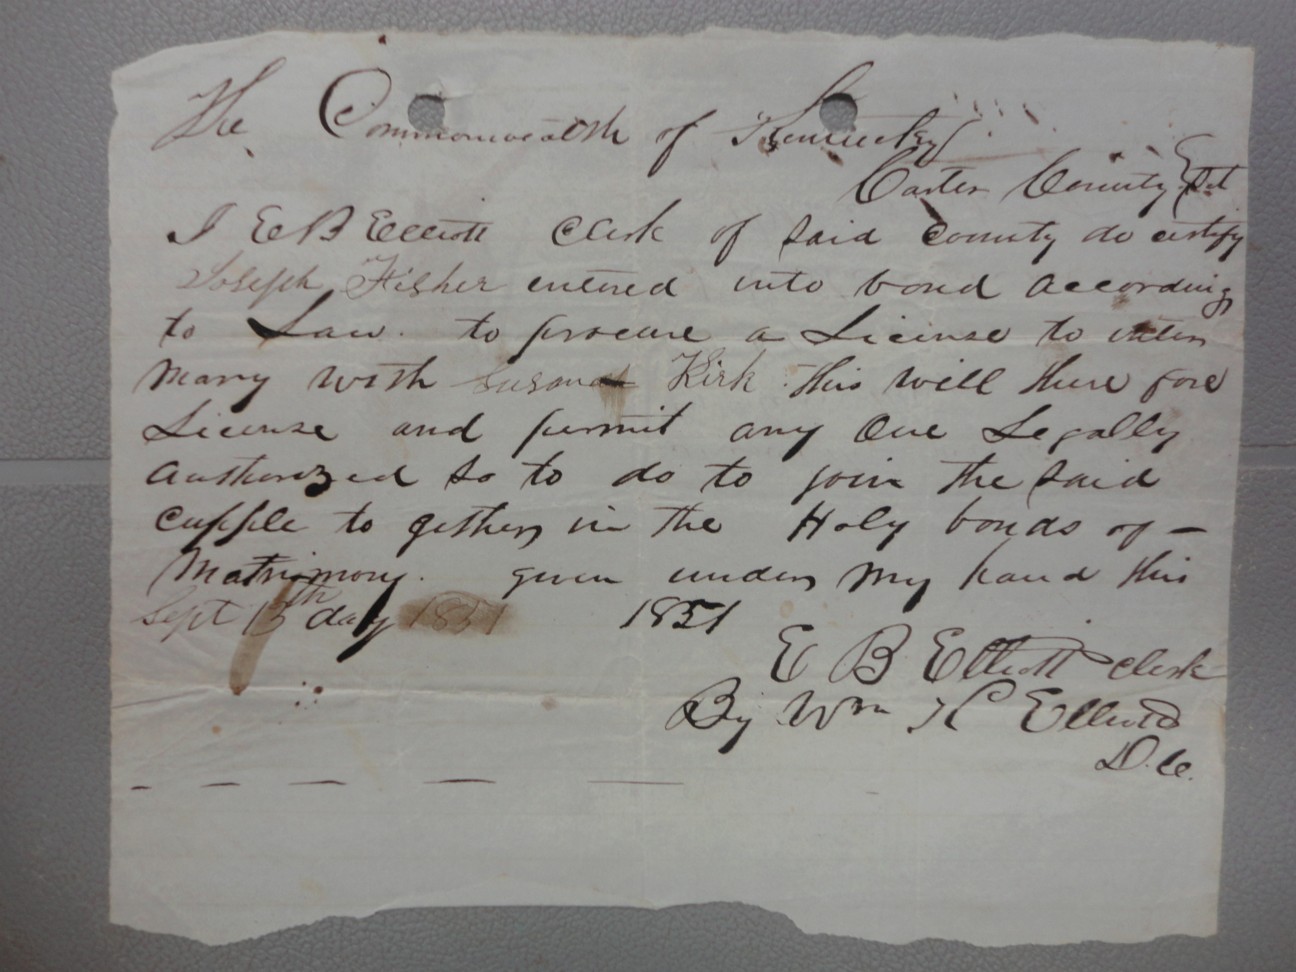 The Commonwealth of Kentucky
Carter County Sct
I E B Elliott Clerk of said County do certify
Joseph Fisher entered into bond according
to Law. to procure a License to inter
marry with Susana Kirk this will there fore
License and permit any One Legally
authorized so to do to join the said
cupple to gether in the Holy bonds of —
Matrimony. given under my hand this
Sept 15th day 1851 1851
E B Elliott Clerk
By Wm K Elliott
D. C.